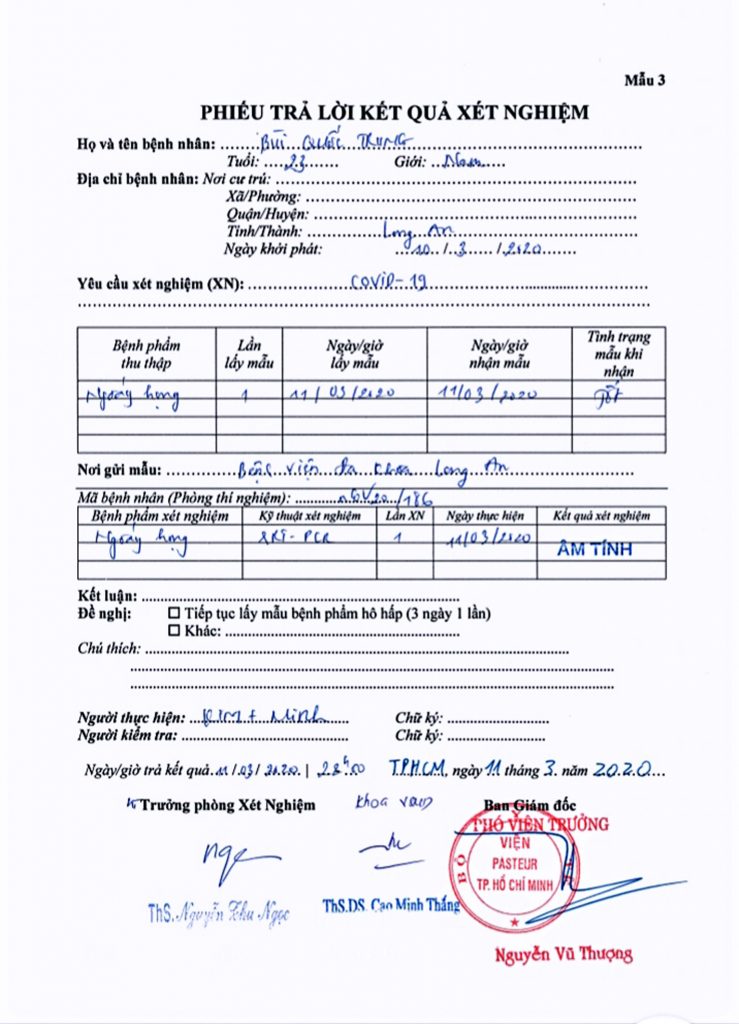 Mẫu 3
PHIẾU TRẢ LỜI KẾT QUẢ XÉT NGHIỆM
Họ và tên bệnh nhân: BÙI QUỐC TRUNG
Tuổi: 23 Giới: Nam
Địa chỉ bệnh nhân: Nơi cư trú:
Xã/Phường:
Quận/Huyện:
Tỉnh/Thành: Long An
Ngày khởi phát: 10/3/2020
Yêu cầu xét nghiệm (XN): COVID-19
Bệnh phẩm thu thập Lần lấy mẫu Ngày/giờ lấy mẫu Ngày/giờ nhận mẫu Tình trạng mẫu khi nhận
Ngoáy họng 1 11/03/2020 11/03/2020 Tốt
Nơi gửi mẫu: Bệnh viện đa khoa Long An
Mã bệnh nhân (Phòng thí nghiệm): nCoV20/186
Bệnh phẩm xét nghiệm Kỹ thuật xét nghiệm Lần XN Ngày thực hiện Kết quả xét nghiệm
Ngoáy họng rRT-PCR 1 11/03/2020 ÂM TÍNH
Kết luận:
Đề nghị: ☐ Tiếp tục lấy mẫu bệnh phẩm hô hấp (3 ngày 1 lần)
☐ Khác:
Chú thích:
Người thực hiện: Minh Chữ ký:
Người kiểm tra: Chữ ký:
Ngày/giờ trả kết quả 11/03/2020 | TP.HCM, ngày 11 tháng 3 năm 2020
Trưởng phòng Xét Nghiệm Khoa Ban Giám đốc
PHÓ VIỆN TRƯỞNG
BỘ Y TẾ
VIỆN
PASTEUR
TP. HỒ CHÍ MINH
ThS. Nguyễn Thu Ngọc ThS.DS. Cao Minh Thắng
Nguyễn Vũ Thượng